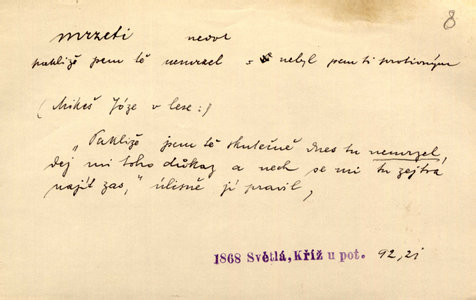 8
mrzeti nedok
pakliže jsem tě nemrzel = nebyl jsem ti protivným
(Mikeš Józe v lese:)
„Pakliže jsem tě skutečně dnes tu nemrzel,
dej mi toho důkaz a nech se mi tu zejtra
najít zas,“ úlisně jí pravil,
1868 Světlá, Kříž u pot. 92, 21